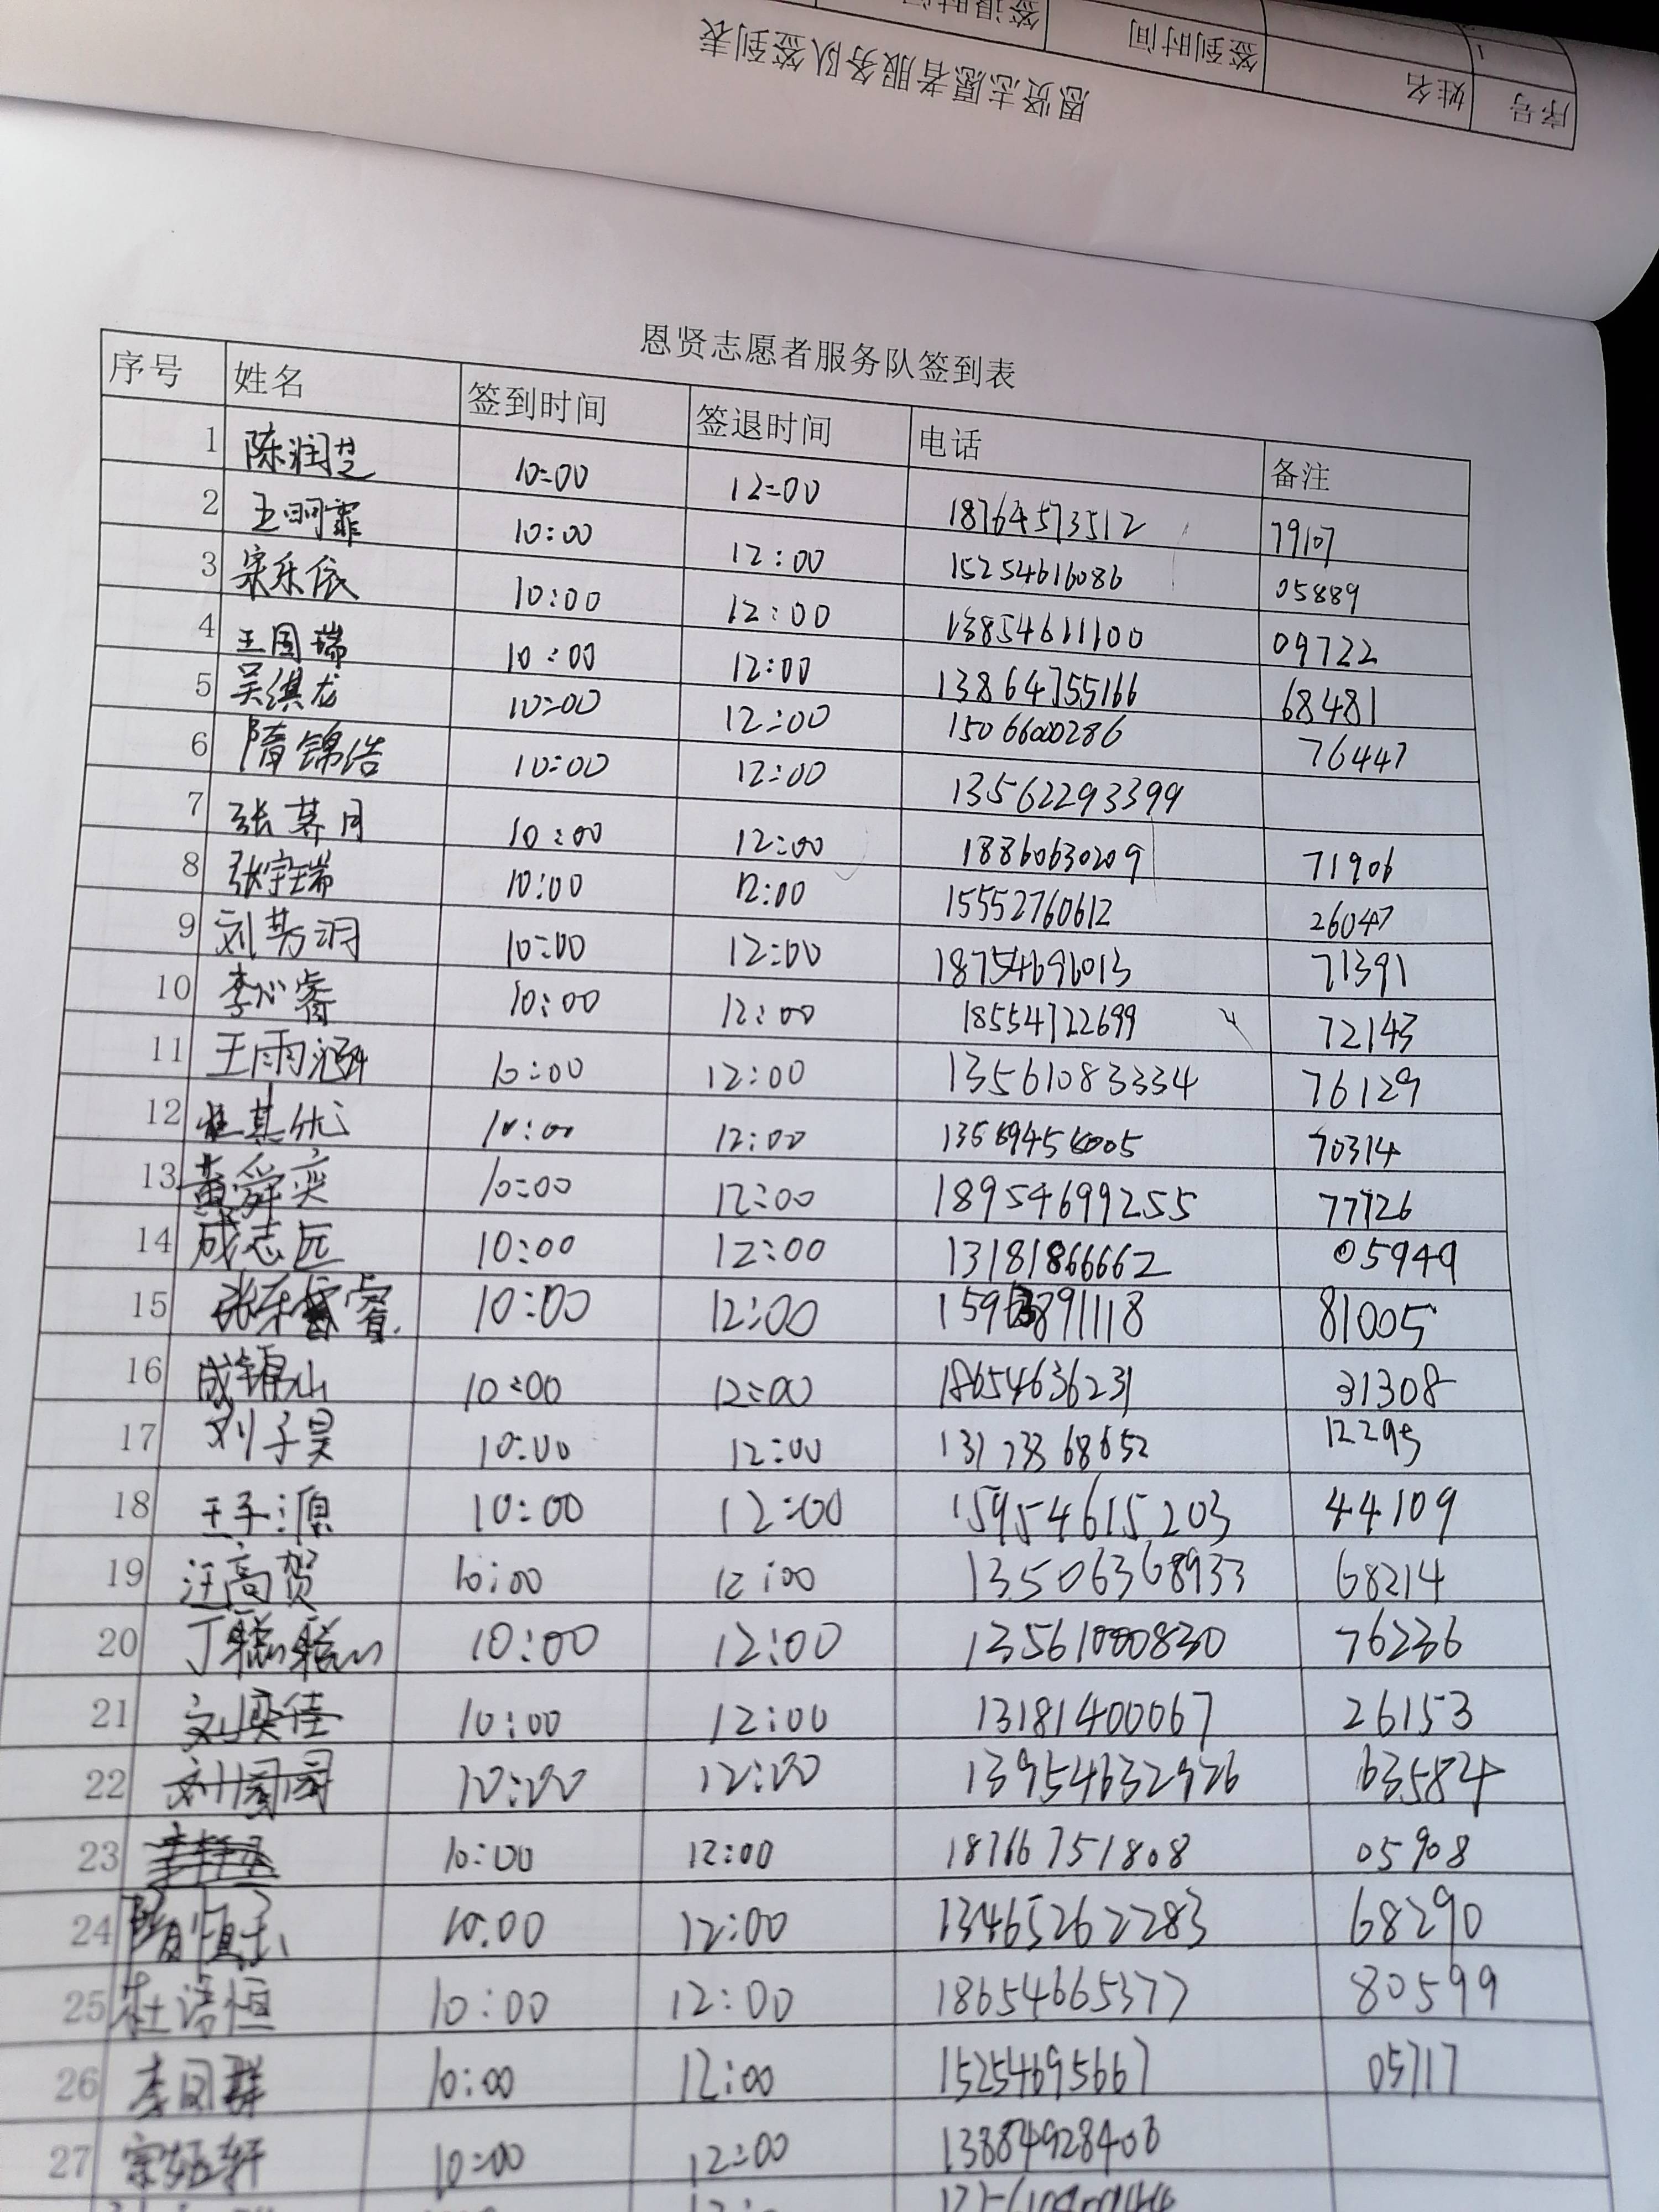 序号 姓名 签到时间 签退时间
1
恩贤志愿者服务队签到表
恩贤志愿者服务队签到表
序号 姓名 签到时间 签退时间 电话 备注
1 陈润芝 10:00 12:00 18764573512 79107
2 10:00 12:00 15254616086 05889
3 宗乐依 10:00 12:00 13854611100 09722
4 王国瑞 10:00 12:00 13864755166 68481
5 吴祺龙 10:00 12:00 15066000286 76447
6 隋锦浩 10:00 12:00 13562293399
7 张慕月 10:00 12:00 18860630209 71906
8 张宇瑞 10:00 12:00 15552760612 26047
9 刘芳洞 10:00 12:00 18754696013 71391
10 李心睿 10:00 12:00 18554722699 72143
11 王雨涵 10:00 12:00 13561083334 76129
12 10:00 12:00 70314
13 黄舜奕 10:00 12:00 18954699255 77726
14 成志远 10:00 12:00 13181866662 05949
15 10:00 12:00 81005
16 成锦山 10:00 12:00 18654636231 31308
17 刘子昊 10:00 12:00 13173368652 12295
18 王子源 10:00 12:00 15954615203 44109
19 汪高贺 10:00 12:00 13506368933 68214
20 10:00 12:00 13561000830 76236
21 刘奕佳 10:00 12:00 13181400067 26153
22 10:00 12:00 13954632926 63584
23 10:00 12:00 18766751808 05908
24 10:00 12:00 13465262283 68290
25 杜浯恒 10:00 12:00 18654665377 80599
26 10:00 12:00 15254695667 05717
27 10:00 12:00 13884928408